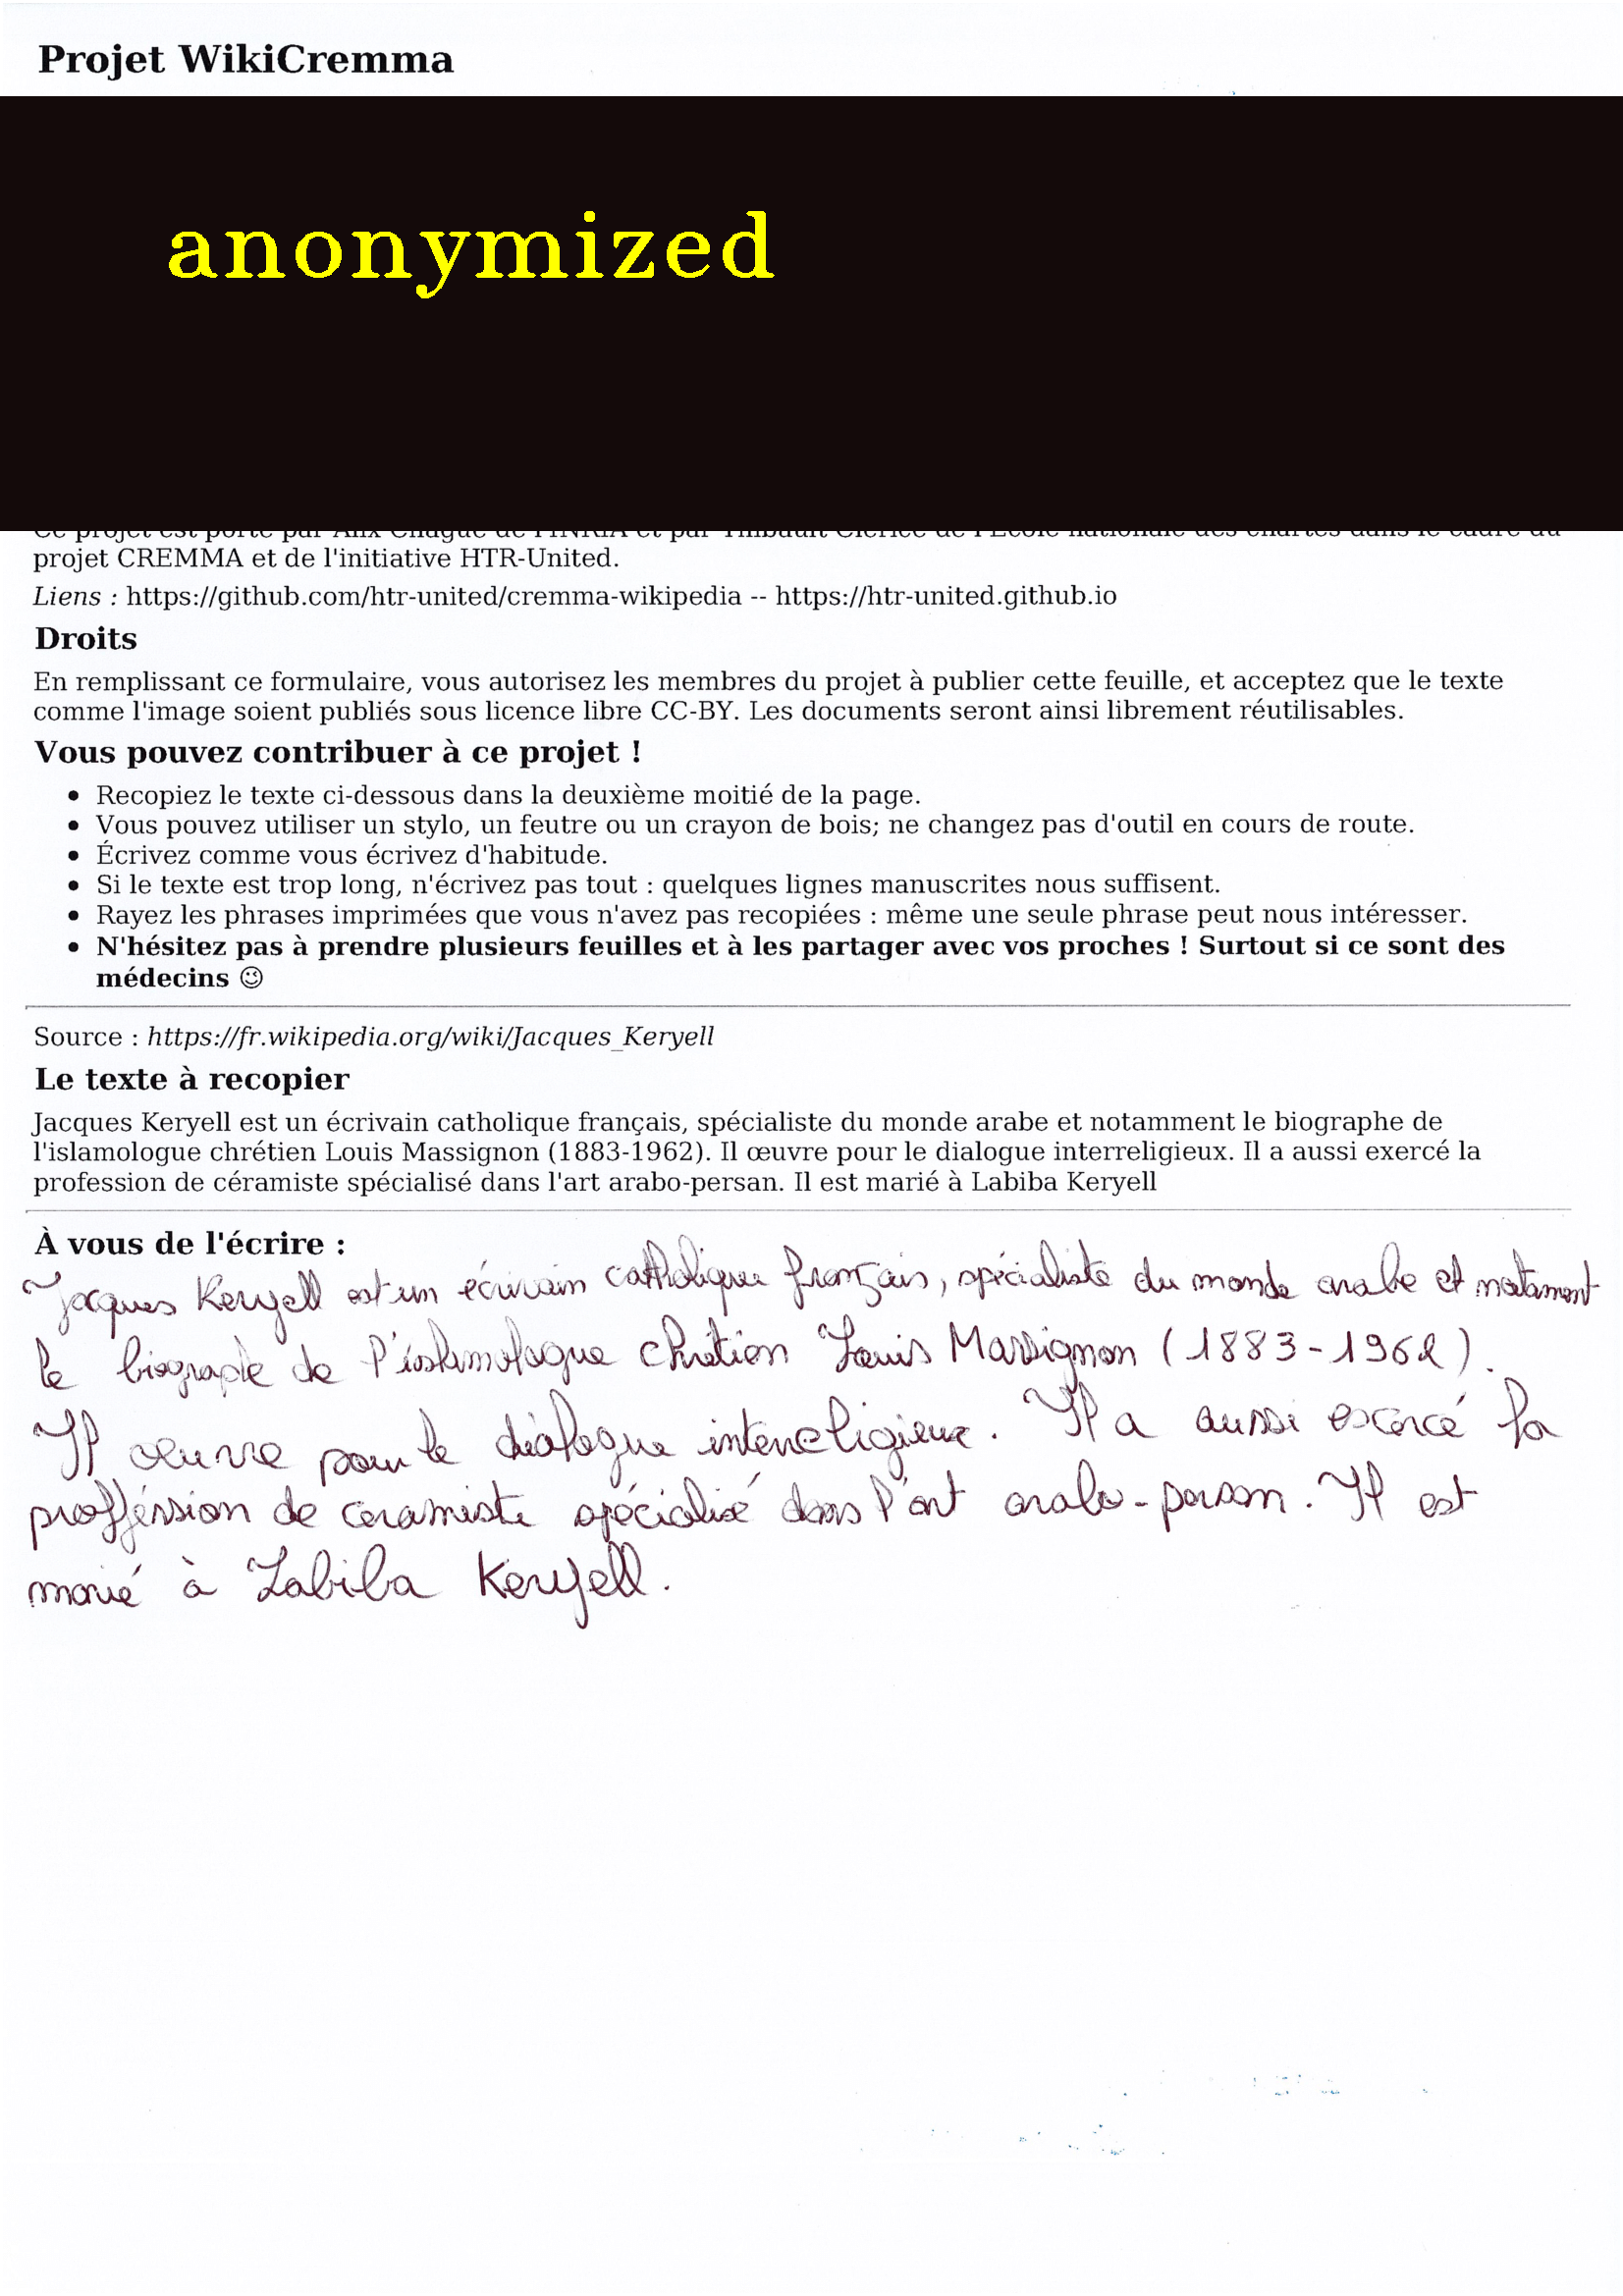 Projet WikiCremma
anonymized
Ce projet est porté par Alix Chagué de l'INRIA et par Thibault Clérice de l'École nationale des chartes dans le cadre du
projet CREMMA et de l'initiative HTR-United.
Liens : https://github.com/htr-united/cremma-wikipedia -- https://htr-united.github.io
Droits
En remplissant ce formulaire, vous autorisez les membres du projet à publier cette feuille, et acceptez que le texte
comme l'image soient publiés sous licence libre CC-BY. Les documents seront ainsi librement réutilisables.
Vous pouvez contribuer à ce projet !
• Recopiez le texte ci-dessous dans la deuxième moitié de la page.
• Vous pouvez utiliser un stylo, un feutre ou un crayon de bois; ne changez pas d'outil en cours de route.
• Écrivez comme vous écrivez d'habitude.
• Si le texte est trop long, n'écrivez pas tout : quelques lignes manuscrites nous suffisent.
• Rayez les phrases imprimées que vous n'avez pas recopiées : même une seule phrase peut nous intéresser.
• N'hésitez pas à prendre plusieurs feuilles et à les partager avec vos proches ! Surtout si ce sont des
médecins 😉
Source : https://fr.wikipedia.org/wiki/Jacques_Keryell
Le texte à recopier
Jacques Keryell est un écrivain catholique français, spécialiste du monde arabe et notamment le biographe de
l'islamologue chrétien Louis Massignon (1883-1962). Il œuvre pour le dialogue interreligieux. Il a aussi exercé la
profession de céramiste spécialisé dans l'art arabo-persan. Il est marié à Labiba Keryell
À vous de l'écrire :
Jacques Keryell est un écrivain catholique français, spécialiste du monde arabe et notament
le biographe de l'islamologue chrétien Louis Massignon (1883-1962).
Il œuvre pour le dialogue interreligieux. Il a aussi exercé la
profféssion de ceramiste spécialisé dans l'art arabo-persan. Il est
marié à Labiba Keryell.